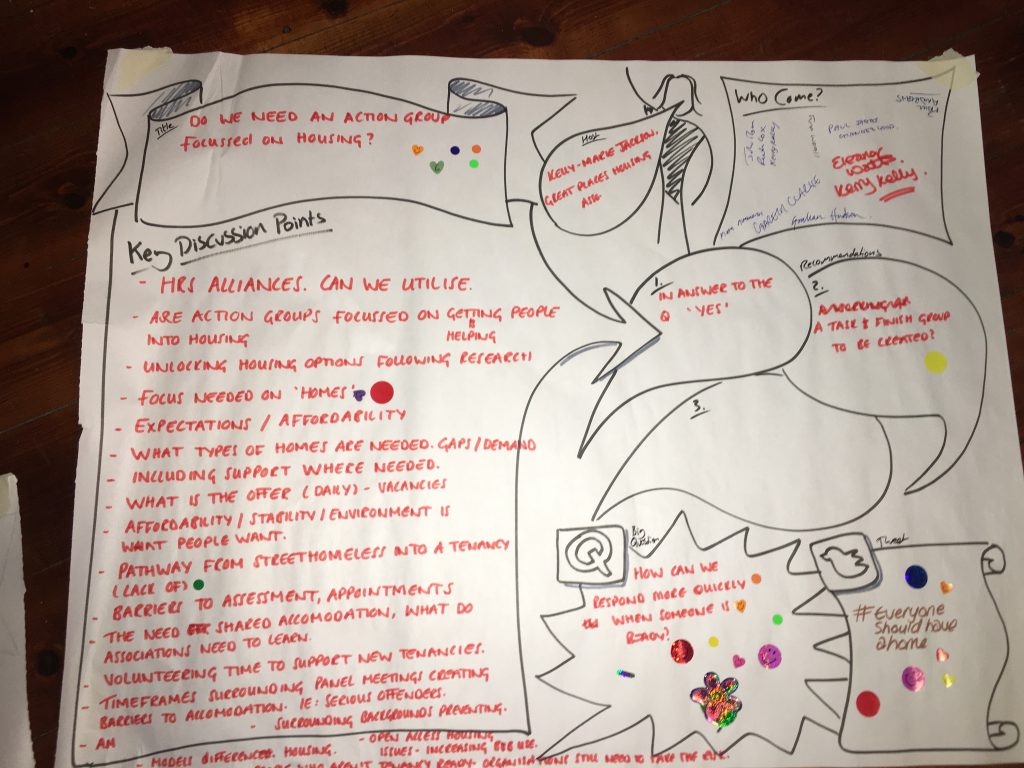 Title
DO WE NEED AN ACTION GROUP
FOCUSSED ON HOUSING?
Host
KELLY-MARIE JACKSON.
GREAT PLACES HOUSING
ASK
Who Came?
Eleanor
Watts
Kerry Kelly.
GARETH CLARKE
Graham Hudson.
Key Discussion Points
- HRS ALLIANCES. CAN WE UTILISE.
- ARE ACTION GROUPS FOCUSSED ON GETTING PEOPLE
INTO HOUSING
& HELPING
- UNLOCKING HOUSING OPTIONS FOLLOWING RESEARCH
- FOCUS NEEDED ON 'HOMES'
- EXPECTATIONS / AFFORDABILITY
- WHAT TYPES OF HOMES ARE NEEDED. GAPS/DEMAND
- INCLUDING SUPPORT WHERE NEEDED.
- WHAT IS THE OFFER (DAILY) - VACANCIES
- AFFORDABILITY / STABILITY / ENVIRONMENT IS
WHAT PEOPLE WANT.
- PATHWAY FROM STREETHOMELESS INTO A TENANCY
(LACK OF)
- BARRIERS TO ASSESSMENT, APPOINTMENTS
- THE NEED SHARED ACCOMODATION, WHAT DO
ASSOCIATIONS NEED TO LEARN.
- VOLUNTEERING TIME TO SUPPORT NEW TENANCIES.
- TIMEFRAMES SURROUNDING PANEL MEETINGS CREATING
BARRIERS TO ACCOMODATION. IE: SERIOUS OFFENDERS.
- SURROUNDING BACKGROUNDS PREVENTING.
- AN
- OPEN ACCESS HOUSING
- MODELS DIFFERENCES. HOUSING.
ISSUES - INCREASING B&B USE.
WHO AREN'T TENANCY READY - ORGANISATIONS STILL NEED TO TAKE THE RISK.
Recommendations
1.
IN ANSWER TO THE
Q 'YES'
2.
A TASK & FINISH GROUP
TO BE CREATED?
3.
Q
Big
Question
HOW CAN WE
RESPOND MORE QUICKLY
WHEN SOMEONE IS
READY?
Tweet
#Everyone
Should have
a home